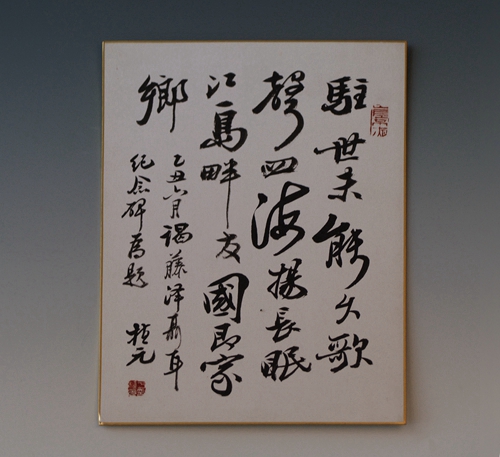 駐世未能久歌
聲四海揚長眠
江島畔友國即家
鄉
乙丑六月謁藤澤聶耳
紀念碑為題
植元